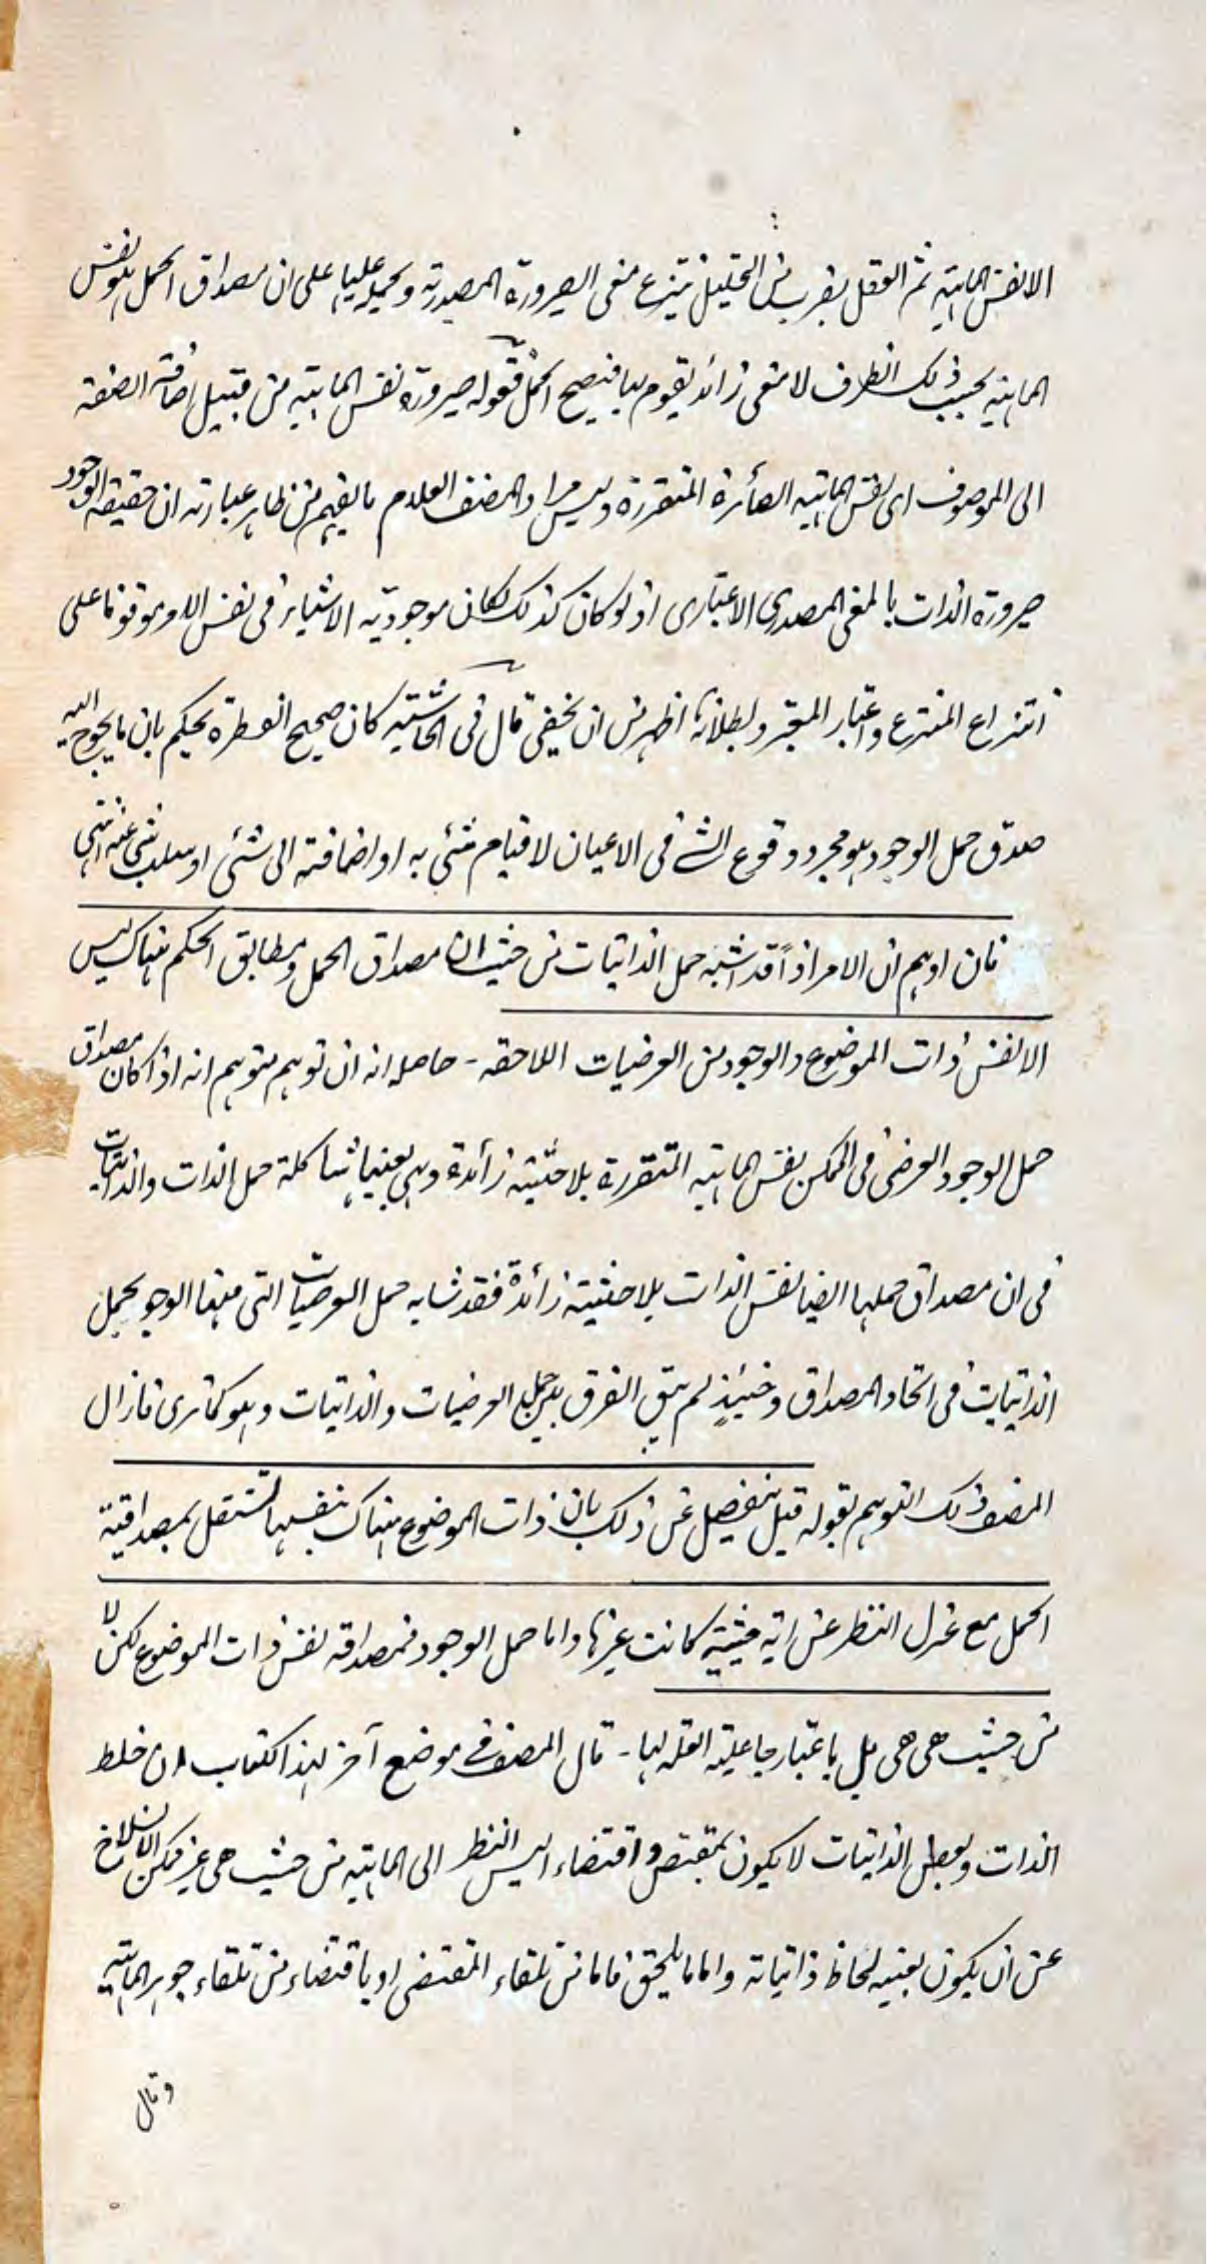 الا نفس الماهية ثم العقل بضرب من التحليل ينتزع منه معنى الصيرورة المصدرية ويحمله عليها على ان مصداق الحمل هو نفس
الماهية بحسب ذلك الظرف لا معنى زائد يقوم بها فيصح الحمل فقوله صيرورة نفس الماهية من قبيل اضافة الصفة
الى الموصوف اى نفس الماهية الصائرة المتقررة وليس مراد المصنف العلام ما يفهم من ظاهر عبارته ان حقيقة الوجود
صيرورة الذات بالمعنى المصدرى الاعتبارى اذ لو كان كذلك لكان موجودية الاشياء فى نفس الامر موقوفا على
انتزاع المنتزع واعتبار المعتبر وبطلانه اظهر من ان يخفى قال فى الحاشية كان صحيح الفطرة يحكم بان ما يحوج اليه
صدق حمل الوجود هو مجرد وقوع الشئ فى الاعيان لا قيام شئ به او اضافته الى شئ او سلب شئ عنه انتهى
فان اوهم ان الامر اذاً قد اشبه حمل الذاتيات من حيث ان مصداق الحمل ومطابق الحكم هناك ليس
الا نفس ذات الموضوع والوجود من العرضيات اللاحقه - حاصله انه ان توهم متوهم انه اذا كان مصداق
حمل الوجود العرضى فى الممكن نفس الماهية المتقررة بلا حيثية زائدة وهى بعينها شاكلة حمل الذات والذاتيات
فى ان مصداق حملها ايضا نفس الذات بلا حيثية زائدة فقد شابه حمل العرضيات التى منها الوجود بحمل
الذاتيات فى اتحاد المصداق وحينئذ لم يبق الفرق بين حمل العرضيات والذاتيات وهو كما ترى فازال
المصنف ذلك التوهم بقوله قيل يتفصل عن ذلك بان ذات الموضوع هناك بنفسها تستقل بمصداقية
الحمل مع عزل النظر عن اية حيثية كانت غيرها واما حمل الوجود فمصداقه نفس ذات الموضوع لكن لا
من حيث هى هى بل باعتبار جاعلية العلة لها - قال المصنف فى موضع آخر لهذا الكتاب ان خلط
الذات الذاتيات لا يكون بمقتض واقتضاء اليس النظر الى الماهية من حيث هى غير ممكن الانسلاخ
عن ان يكون بعينه لحاظ ذاتياته واما ما يلحق فاما من تلقاء المقتضى او باقتضاء من تلقاء جوهر الماهية
وقال